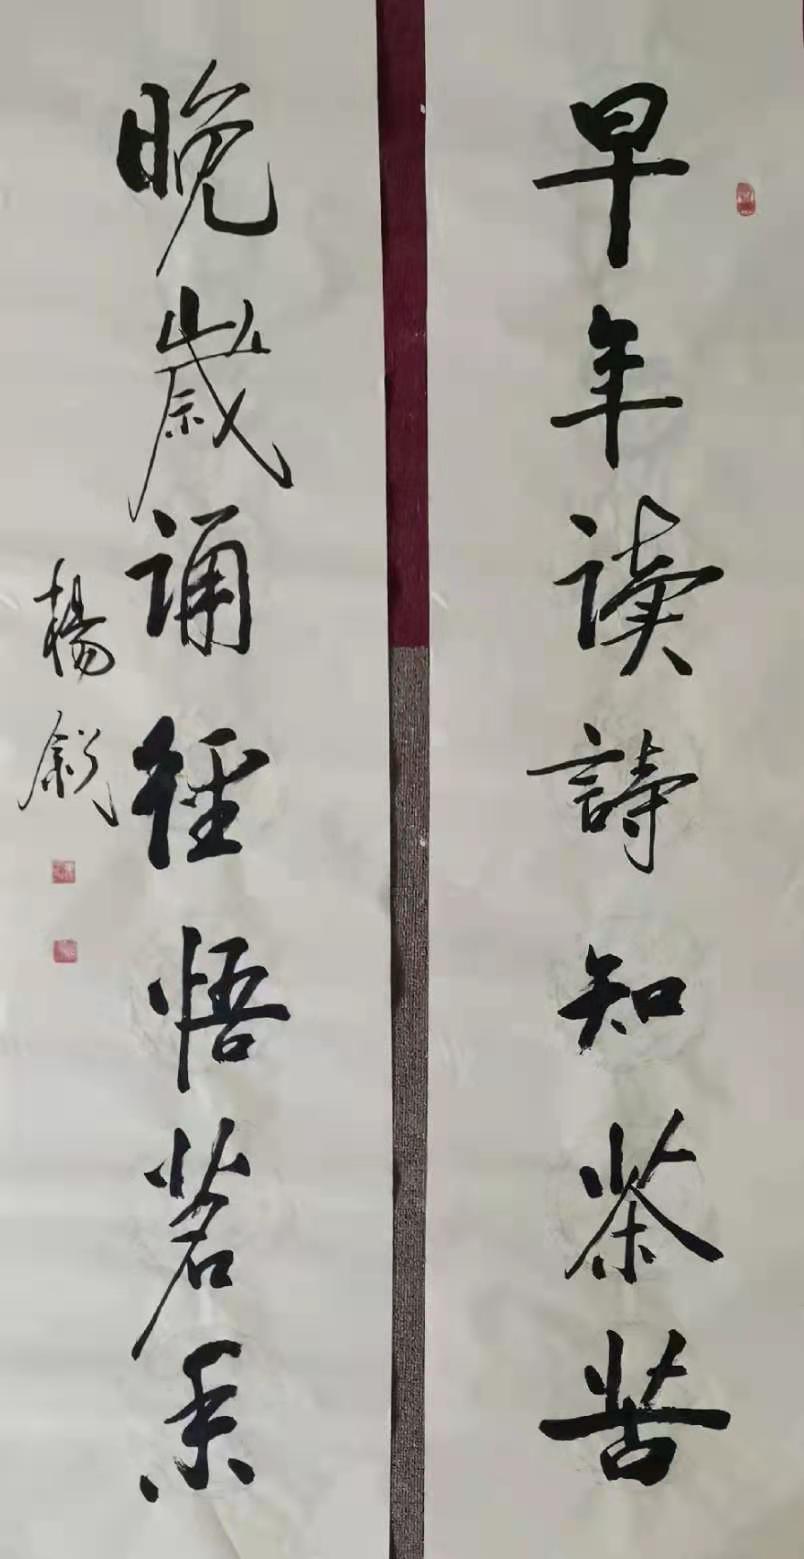 早年读詩知茶苦
晚歲诵經悟茗香
楊